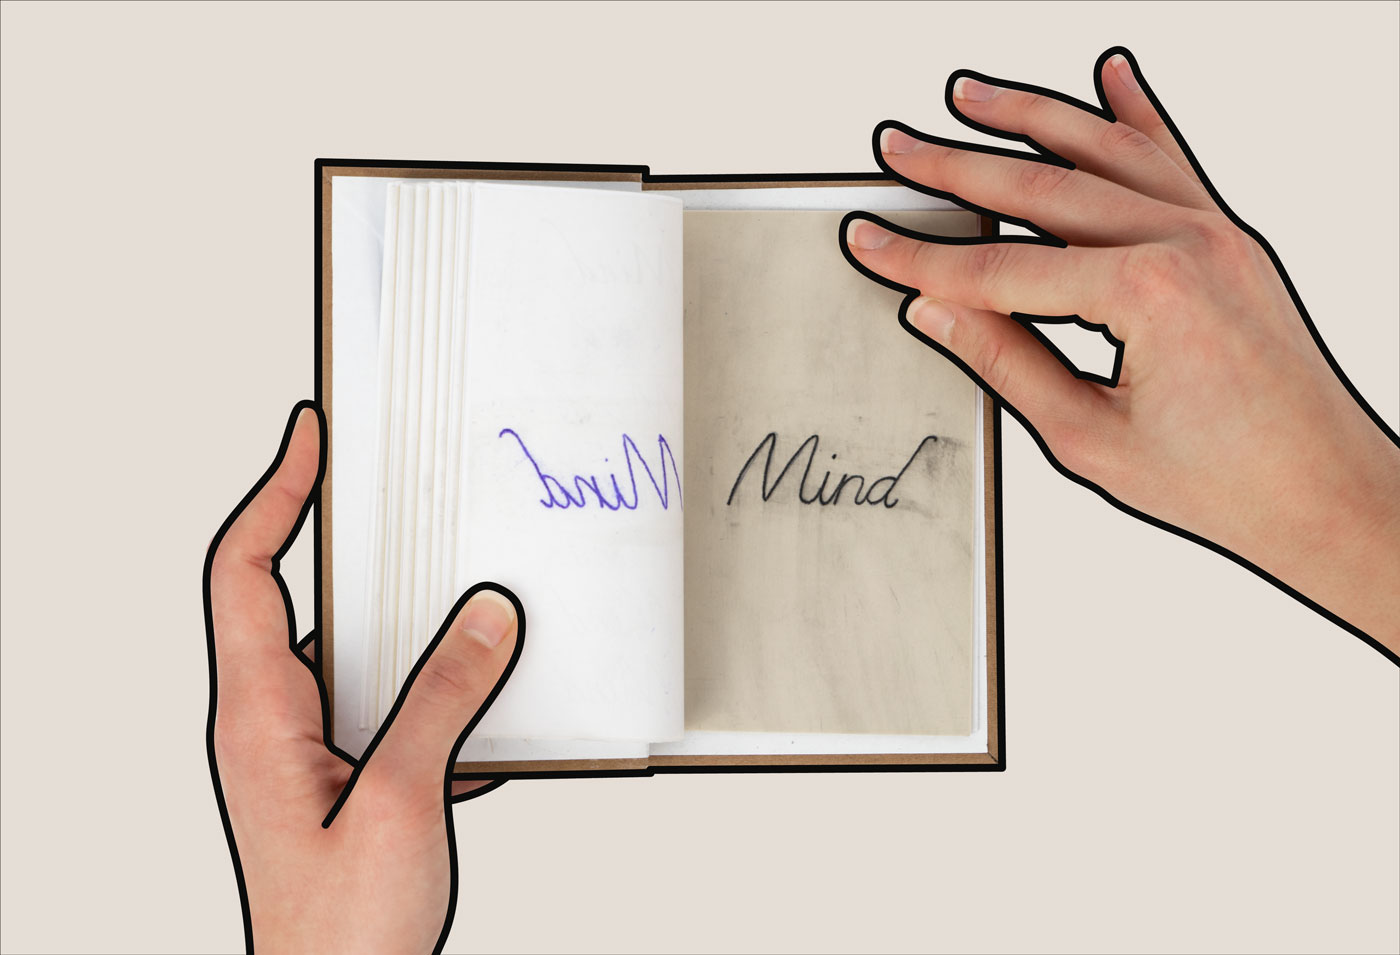 Mind
Mind